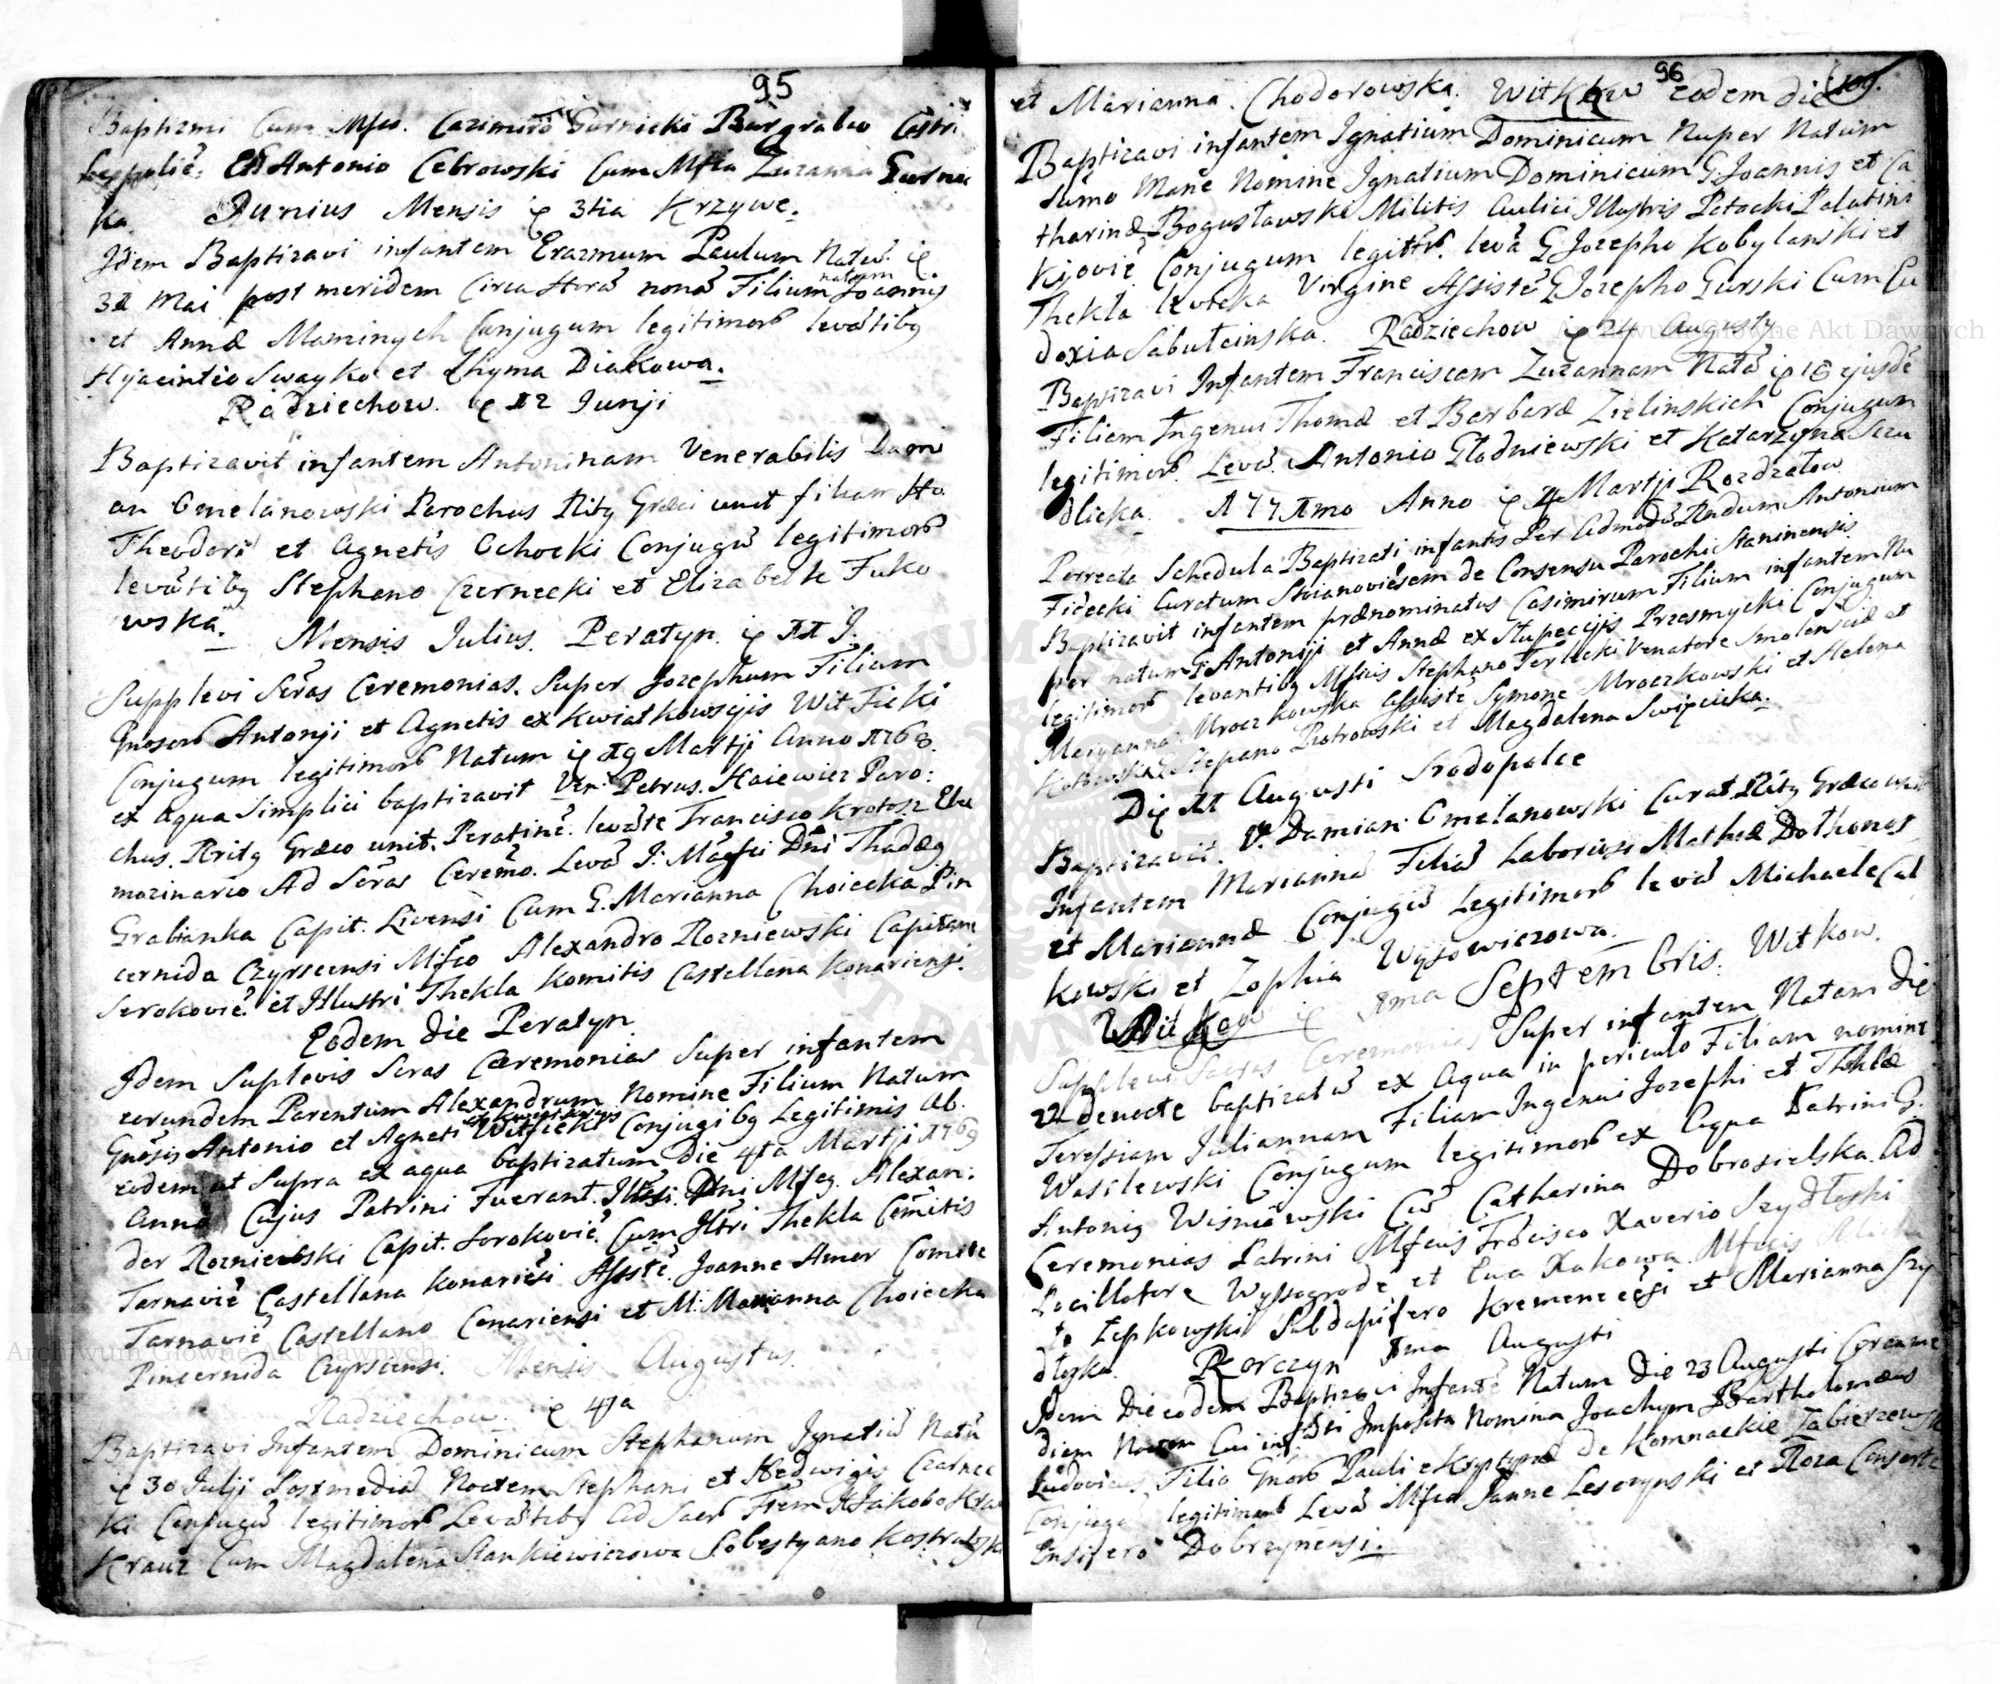 95
Baptizmi Cum Mfco. Cazimiro Gurnicki Burgrabio Castri
et Antonio Cebrowski Cum Mfca Zuzanna Gurnic
ka. Junius Mensis 3tia Krzywe.
Idem Baptizavi infantem Erazmum Paulum Natū
31 Mai post meridem Circa Horā nonā Filium natum Joannis
et Annæ Maminych Conjugum legitimorū levātibq
Hyacintio Swayko et Thyma Diakowa.
Radziechow. 12 Junji
Baptizavit infantem Antoninam Venerabilis Dami
an Omelanowski Parochus Ritq Græci unit filiam
Theodori et Agnetis Ochocki Conjugū legitimorū
levātibq Stephano Czernecki et Elizabeth Fuko
wska. Mensis Julius. Peratyn. 11 J.
Supplevi Scras Ceremonias. Super Jozephum Filium
Gnosorū Antonji et Agnetis ex Kwiatkowscijs Wit Ficki
Conjugum legitimorū Natum 19 Martji Anno 1768.
ex aqua Simplici baptizavit Ven. Petrus. Haiewicz Paro:
chus. Ritq Græco unit. Peratinē. levāte Francisco Krotosz Ele
mozinario Ad Scras Ceremo. Levā J. Magfci Dni Thadæq
Grabianka Capit. Livensi Cum G. Marianna Choiecka Pin
cernida Czyrscensi Mfco Alexandro Rozniewski Capitane
Serokovie. et Illustri Thekla Komitis Castellana Konariensi.
Eodem die Peratyn
Idem Suplevis Scras Cæremonias Super infantem
eorundem Parentum Alexandrum Nomine Filium Natum
Gnosis Antonio et Agneti Witficki Conjugibq Legitimis Ab
eodem ut Supra ex aqua baptizatum die 4ta Martji 1769
Anno Cujus Patrini Fuerant. Dni Mfcq. Alexan:
der Rozniewski Capit. Sorokovie. Cum Iltri Thekla Comitis
Tarnavie Castellana Konariesi Assistē. Joanne Amor Comite
Tarnavie Castellano Conariensi et M. Marianna Choiecka
Pincernida Czyrscensi. Mensis Augustus.
Radziechow. 4ta
Baptizavi Infantem Dominicum Stephanum Ignatiū Natū
30 Julji Post mediā Noctem Stephani et Hedwigis Czarnec
ki Conjugū legitimorū Levātibq Ad Sacr FTem Jakobo Kra
Krauz Cum Magdalena Stankiewiczowa Sebestyano Kostra
96
109.
et Marianna. Chodorowska. Witkow eodem die
Baptizavi infantem Ignatium Dominicum Nuper Natum
Sumo Mane Nomine Ignatium Dominicum G. Joannis et Ca
tharinæ Bogusławski Militis Aulici Illustris Potocki Palatini
Kijovie Conjugum legittrū. levā G. Jozepho Kobylanski et
Thekla Virgine Assistē G. Jozepho Gurski Cum Eu
doxia Radziechow 24 Augusty
Baptizavi Infantem Franciscam Zuzannam Natā 18 ejusdē
Filiam Ingenui Thomæ et Barbaræ Zielinskich Conjugum
legitimorū. Levā. Antonio Gładniewski et Katarzyna Szu
dlicka. 1771mo Anno 4 Martji Rozdzałow
Porrecta Schedula Baptizati infantis Per Admodū Rndum Antonium
Ficecki Curatum Stoianoviesem de Consensu Parochi Staninensis
Baptizavit infantem prænominatus Casimirum Filium infantem Nu
per natum G. Antonji et Annæ ex Słupeccijs Przesmycki Conjugum
legitimorū levantibq Mfcis Stephano Terlecki Venatore Smolenscie et
Maryanna Mroczkowska Assistē Symone Mroczkowski et Helena
Stepano Piotrowski et Magdalena
Die 11 Augusti Srodopolce
Baptizavit. V. Damian Omelanowski Curat. Ritq Græco unit
Infantem Mariannā Filiā Laboriosi Mathiæ Dothonos
et Mariannæ Conjugū Legitimorū levā Michaele Cal
kowski et Zophia Wysowiczowa.
Witkow 1ma Septembris. Witkow.
Supplevi Sacras Ceremonias Super infantem Natam die
22 denocte baptizatā ex Aqua in periculo Filiam nomine
Teressiam Juliannam Filiam Ingenui Jozephi et Theklæ
Wasilewski Conjugum legitimorū ex Aqua Patrini G.
Antoniq Wisniowski Cū Catharina Dobrosielska. Ad
Ceremonias Patrini Mfcus Frācisco Xaverio Szydłoski
Pocillatore Wyssogrodē et Ewa Rakowa. Mfcis
Łepkowski Subdapifero Kremenecēsi et Marianna Szy
dłoska. Korczyn 1ma Augusti
Idem Die eodem Baptizavi Infantē Natum Die 23 Augusti
diem Noctem Cui Imposita Nomina Joachym Bartholomæus
Ludovicus Filio Gnorū Pauli de Komnackie Zabierzewski
Conjugū legitimorū Levā Mfco Janne Lesczynski et Roza Consorte
Ensifero Dobrzynensi.
Archiwum Główne Akt Dawnych
Archiwum Główne Akt Dawnych